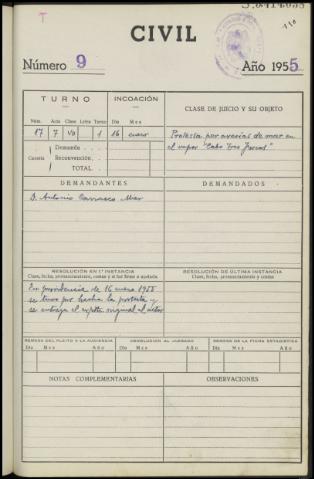 T
110
CIVIL
Número 9
Año 1955
TURNO
INCOACIÓN
CLASE DE JUICIO Y SU OBJETO
Núm. Año Clase Letra Turno Día Mes
17 7 Vº 1 16 enero
Protesta por averías de mar en
el vapor "Cabo Tres Forcas"
Cuantía
Demanda
Reconvención
TOTAL
DEMANDANTES
DEMANDADOS
D. Antonio Carrasco
RESOLUCIÓN EN 1.ª INSTANCIA
Clase, fecha, pronunciamiento, costas y si fué firme o apelada
RESOLUCIÓN DE ÚLTIMA INSTANCIA
Clase, fecha, pronunciamiento y costas
En providencia de 16 enero 1955
se tuvo por hecha la protesta y
se entregó el expte original al actor
REMESA DEL PLEITO A LA AUDIENCIA
DEVOLUCIÓN AL JUZGADO
REMESA DE LA FICHA ESTADÍSTICA
Día Mes Año Día Mes Año Día Mes Año
NOTAS COMPLEMENTARIAS
OBSERVACIONES